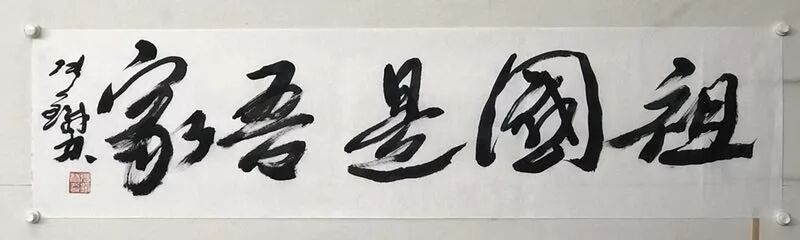 祖國是吾家